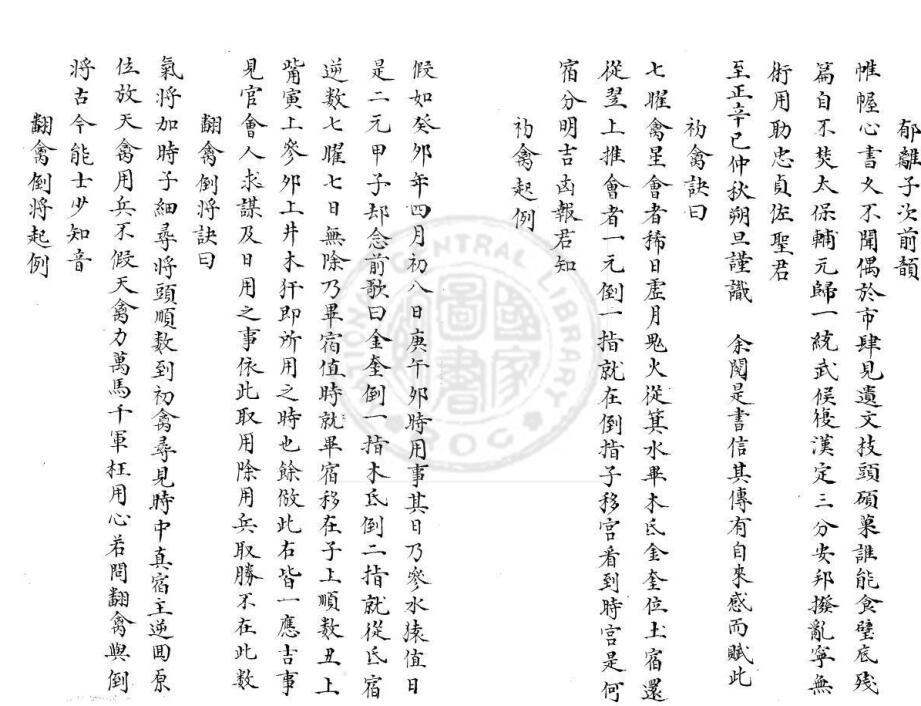 郁離子次前韻
帷幄心書久不聞偶於市肆見遺文枝頭碩菓誰能食壁底殘
篇自不焚太保輔元歸一統武侯復漢定三分安邦撥亂寧無
術用助忠貞佐聖君
至正辛巳仲秋朔旦謹識 余閱是書信其傳有自來感而賦此
初禽訣曰
七曜禽星會者稀日虛月鬼火從箕水畢木氐金奎位土宿還
從翌上推會者一元倒一指就在倒指子移宮看到時宮是何
宿分明吉凶報君知
初禽起例
假如癸卯年四月初八日庚午卯時用事其日乃參水猿值日
是二元甲子却念前歌曰金奎倒一指木氐倒二指就從氐宿
逆數七曜七日無除乃畢宿值時就畢宿移在子上順數丑上
觜寅上參卯上井木犴即所用之時也餘倣此右皆一應吉事
見官會人求謀及日用之事依此取用除用兵取勝不在此數
翻禽倒將訣曰
氣將加時子細尋將頭順數到初禽尋見時中真宿主逆回原
位放天禽用兵不假天禽力萬馬千軍枉用心若問翻禽與倒
將古今能士少知音
翻禽倒將起例
NATIONAL CENTRAL LIBRARY
國家圖書館
ROC